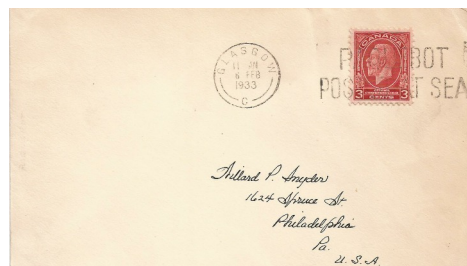 GLASGOW
11 - AM
6 FEB
1933
C
CANADA
3 CENTS 3
P BOT
POS AT SEA
Willard P. Snyder
1624 Spruce St.
Philadelphia
Pa.
U.S.A.